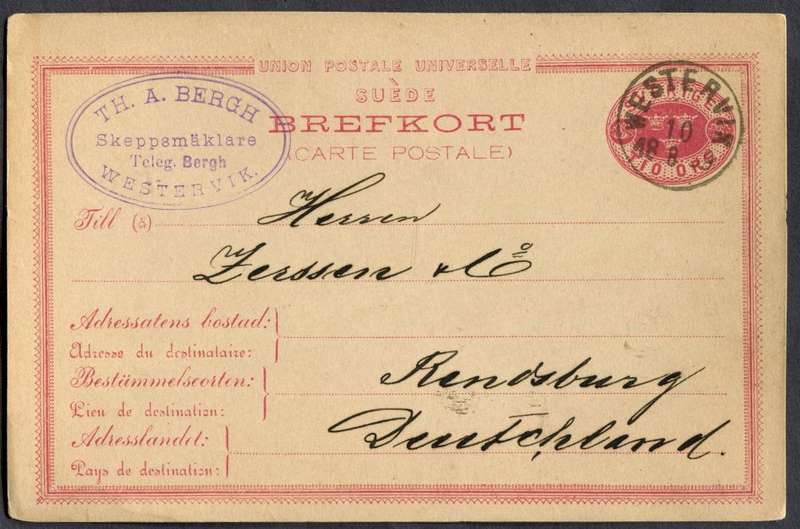 UNION POSTALE UNIVERSELLE
SUÈDE
BREFKORT
(CARTE POSTALE)
TH. A. BERGH
Skeppsmäklare
Teleg. Bergh
WESTERVIK.
WESTERVIK
10
TIO ÖRE
Till (à)
Herren
Zerssen & Co
Adressatens bostad:
Adresse du destinataire:
Bestämmelseorten:
Lieu de destination:
Rendsburg
Adresslandet:
Pays de destination:
Deutschland.